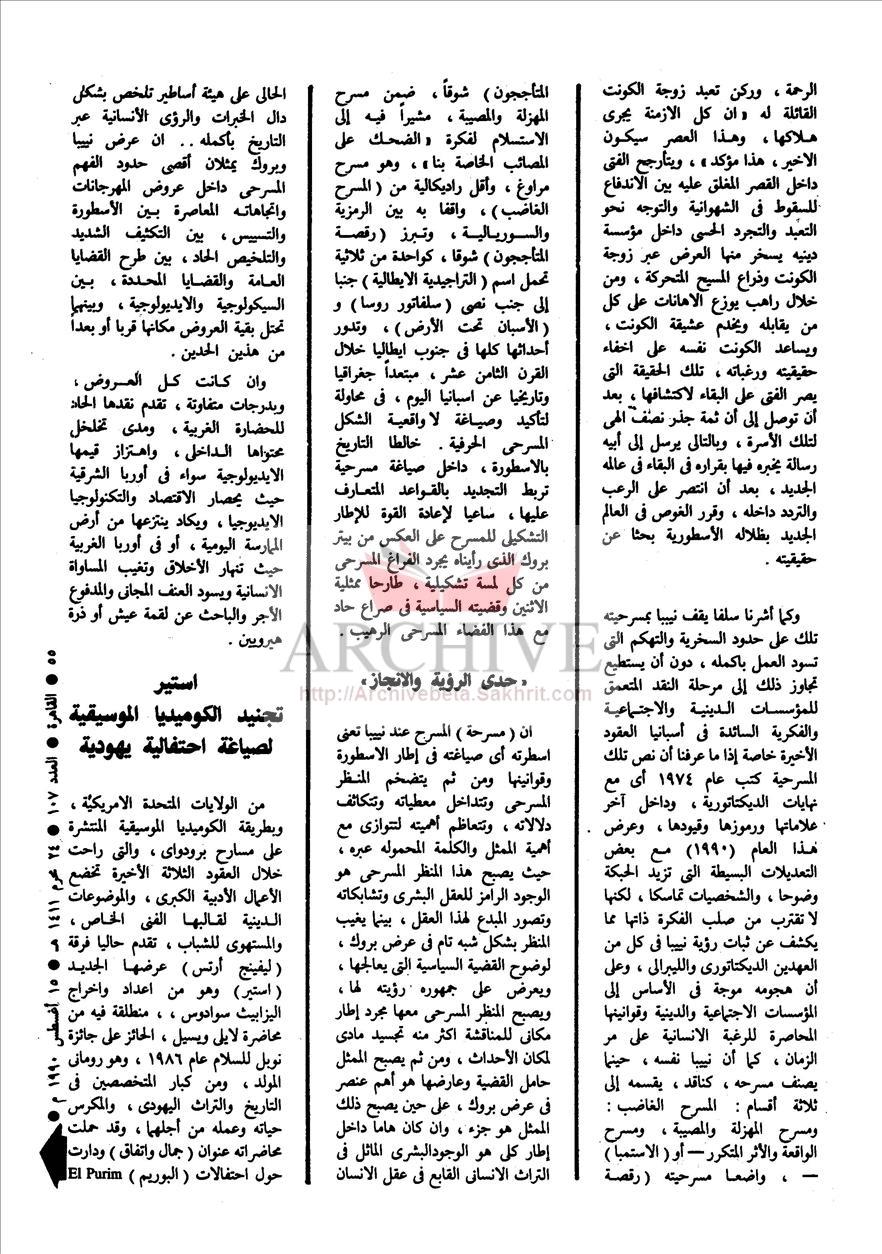 الرحمة ، وركن تعبد زوجة الكونت
القائلة له « ان كل الازمنة يجرى
هلاكها ، وهذا العصر سيكون
الاخير ، هذا مؤكد » ، ويتأرجح الفتى
داخل القصر المغلق عليه بين الاندفاع
للسقوط فى الشهوانية والتوجه نحو
التعبد والتجرد الحسى داخل مؤسسة
دينيه يسخر منها العرض عبر زوجة
الكونت وذراع المسيح المتحركة ، ومن
خلال راهب يوزع الاهانات على كل
من يقابله ويخدم عشيقة الكونت ،
ويساعد الكونت نفسه على اخفاء
حقيقيته ورغباته ، تلك الحقيقة التى
يصر الفتى على البقاء لاكتشافها ، بعد
أن توصل إلى أن ثمة جذر نصف الهى
لتلك الأسرة ، وبالتالى يرسل إلى أبيه
رسالة يخبره فيها بقراره فى البقاء فى عالمه
الجديد ، بعد أن انتصر على الرعب
والتردد داخله ، وقرر الغوص فى العالم
الجديد بظلاله الأسطورية بحثا عن
حقيقيته .
وكما أشرنا سلفا يقف نييبا بمسرحيته
تلك على حدود السخرية والتهكم التى
تسود العمل باكمله ، دون أن يستطيع
تجاوز ذلك إلى مرحلة النقد المتعمق
للمؤسسات الدينية والاجتماعية
والفكرية السائدة فى أسبانيا العقود
الأخيرة خاصة إذا ما عرفنا أن نص تلك
المسرحية كتب عام ١٩٧٤ أى مع
نهايات الديكتاتورية ، وداخل آخر
علاماتها ورموزها وقيودها ، وعرض
هذا العام (١٩٩٠) مع بعض
التعديلات البسيطة التى تزيد الحبكة
وضوحا ، والشخصيات تماسكا ، لكنها
لا تقترب من صلب الفكرة ذاتها مما
يكشف عن ثبات رؤية نييبا فى كل من
العهدين الديكتاتورى والليبرالى ، وعلى
أن هجومه موجة فى الأساس إلى
المؤسسات الاجتماعية والدينية وقوانينها
المحاصرة للرغبة الانسانية على مر
الزمان ، كما أن نييبا نفسه ، حينما
يصنف مسرحه ، كناقد ، يقسمه إلى
ثلاثة أقسام : المسرح الغاضب :
ومسرح المهزلة والمصيبة ، ومسرح
الواقعة والأثر المتكرر — أو ( الاستمبا )
— ، واضعا مسرحيته ( رقصة
المتأججون ) شوقاً ، ضمن مسرح
المهزلة والمصيبة ، مشيراً فيه إلى
الاستسلام لفكرة « الضحك على
المصائب الخاصة بنا » ، وهو مسرح
مراوغ ، وأقل راديكالية من ( المسرح
الغاضب ) ، واقفا به بين الرمزية
والسوريالية ، وتبرز ( رقصة
المتأججون ) شوقا ، كواحدة من ثلاثية
تحمل اسم ( التراجيدية الايطالية ) جنبا
إلى جنب نصى ( سلفاتور روسا ) و
( الأسبان تحت الأرض ) ، وتدور
أحداثها كلها فى جنوب ايطاليا خلال
القرن الثامن عشر ، مبتعداً جغرافيا
وتاريخيا عن اسبانيا اليوم ، فى محاولة
لتأكيد وصياغة لا واقعية الشكل
المسرحى الحرفية . خالطا التاريخ
بالاسطورة ، داخل صياغة مسرحية
تربط التجديد بالقواعد المتعارف
عليها ، ساعيا لإعادة القوة للإطار
التشكيلى للمسرح على العكس من بيتر
بروك الذى رأيناه يجرد الفراغ المسرحى
من كل لمسة تشكيلية ، طارحا ممثلية
الاثنين وقضيته السياسية فى صراع حاد
مع هذا الفضاء المسرحى الرهيب .
« حدى الرؤية والانجاز »
ان ( مسرحة ) المسرح عند نييبا تعنى
اسطرته أى صياغته فى إطار الاسطورة
وقوانينها ومن ثم يتضخم المنظر
المسرحى وتتداخل معطياته وتتكاثف
دلالاته ، وتتعاظم أهميته لتتوازى مع
أهمية الممثل والكلمة المحموله عبره ،
حيث يصبح هذا المنظر المسرحى هو
الوجود الرامز للعقل البشرى وتشابكاته
وتصور المبدع لهذا العقل ، بينما يغيب
المنظر بشكل شبه تام فى عرض بروك ،
لوضوح القضية السياسية التى يعالجها ،
ويعرض على جمهوره رؤيته لها ،
ويصبح المنظر المسرحى معها مجرد إطار
مكانى للمناقشة اكثر منه تجسيد مادى
لمكان الأحداث ، ومن ثم يصبح الممثل
حامل القضية وعارضها هو أهم عنصر
فى عرض بروك ، على حين يصبح ذلك
الممثل هو جزء ، وان كان هاما داخل
إطار كلى هو الوجودالبشرى الماثل فى
التراث الانسانى القابع فى عقل الانسان
الحالى على هيئة أساطير تلخص بشكل
دال الخبرات والرؤى الأنسانية عبر
التاريخ بأكمله .. ان عرض نييبا
وبروك يمثلان أقصى حدود الفهم
المسرحى داخل عروض المهرجانات
واتجاهاته المعاصرة بين الأسطورة
والتسييس ، بين التكثيف الشديد
والتلخيص الحاد ، بين طرح القضايا
العامة والقضايا المحددة ، بين
السيكولوجية والايديولوجية ، وبينهما
تحتل بقية العروض مكانها قربا أو بعداً
من هذين الحدين .
وان كانت كل العروض ،
وبدرجات متفاوتة ، تقدم نقدها الحاد
للحضارة الغربية ، ومدى تخلخل
محتواها الداخلى ، واهتزاز قيمها
الايديولوجية سواء فى أوربا الشرقية
حيث يحصار الاقتصاد والتكنولوجيا
الايديوجيا ، ويكاد ينتزعها من أرض
الممارسة اليومية ، أو فى أوربا الغربية
حيث تنهار الأخلاق وتغيب المساواة
الانسانية ويسود العنف المجانى والمدفوع
الأجر والباحث عن لقمة عيش أو ذرة
هيرويين .
استير
تجنيد الكوميديا الموسيقية
لصياغة احتفالية يهودية
من الولايات المتحدة الامريكيّة ،
وبطريقة الكوميديا الموسيقية المنتشرة
على مسارح برودواى ، والتى راحت
خلال العقود الثلاثة الأخيرة تخضع
الأعمال الأدبية الكبرى ، والموضوعات
الدينية لقالبها الفنى الخاص ،
والمستهوى للشباب ، تقدم حاليا فرقة
( ليفينج أرتس ) عرضها الجديد
( استير ) وهو من اعداد واخراج
اليزابيث سوادوس ، ، منطلقة فيه من
محاضرة لايلى ويسيل ، الحائز على جائزة
نوبل للسلام عام ١٩٨٦ ، وهو رومانى
المولد ، ومن كبار المتخصصين فى
التاريخ والتراث اليهودى ، والمكرس
حياته وعمله من أجلهما ، وقد حملت
محاضراته عنوان ( جمال واتفاق ) ودارت
حول احتفالات ( البوريم ) El Purim
٥٥ ● القاهرة ● العدد ١٠٧ ● ٢٤ محرم ١٤١١ هـ ● ١٥ أغسطس ١٩٩٠ م ●
ARCHIVE
http://Archivebeta.Sakhrit.com